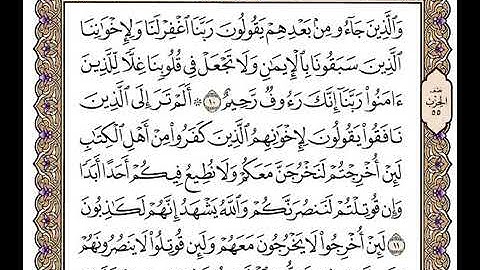 وَٱلَّذِينَ جَآءُو مِنۢ بَعْدِهِمْ يَقُولُونَ رَبَّنَا ٱغْفِرْ لَنَا وَلِإِخْوَٰنِنَا
ٱلَّذِينَ سَبَقُونَا بِٱلْإِيمَٰنِ وَلَا تَجْعَلْ فِى قُلُوبِنَا غِلًّا لِّلَّذِينَ
ءَامَنُوا۟ رَبَّنَآ إِنَّكَ رَءُوفٌ رَّحِيمٌ ١٠ ۞ أَلَمْ تَرَ إِلَى ٱلَّذِينَ
نَافَقُوا۟ يَقُولُونَ لِإِخْوَٰنِهِمُ ٱلَّذِينَ كَفَرُوا۟ مِنْ أَهْلِ ٱلْكِتَٰبِ
لَئِنْ أُخْرِجْتُمْ لَنَخْرُجَنَّ مَعَكُمْ وَلَا نُطِيعُ فِيكُمْ أَحَدًا أَبَدًا
وَإِن قُوتِلْتُمْ لَنَنصُرَنَّكُمْ وَٱللَّهُ يَشْهَدُ إِنَّهُمْ لَكَٰذِبُونَ
١١ لَئِنْ أُخْرِجُوا۟ لَا يَخْرُجُونَ مَعَهُمْ وَلَئِن قُوتِلُوا۟ لَا يَنصُرُونَهُمْ
الحزب
٥٥